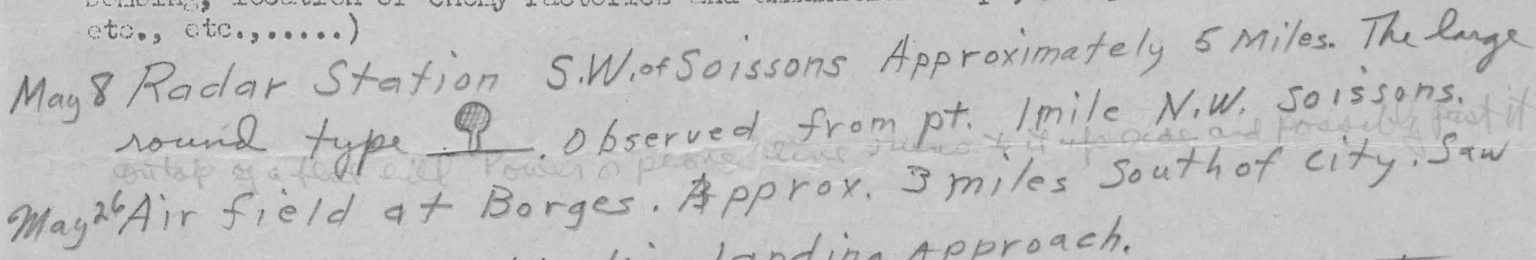 etc., etc.,.....)
May 8 Radar Station S.W. of Soissons Approximately 5 Miles. The large
round type . Observed from pt. 1 mile N.W. Soissons.
on top of a flat hill Power
May 26 Air field at Borges. Approx. 3 miles South of city. Saw
landing Approach.